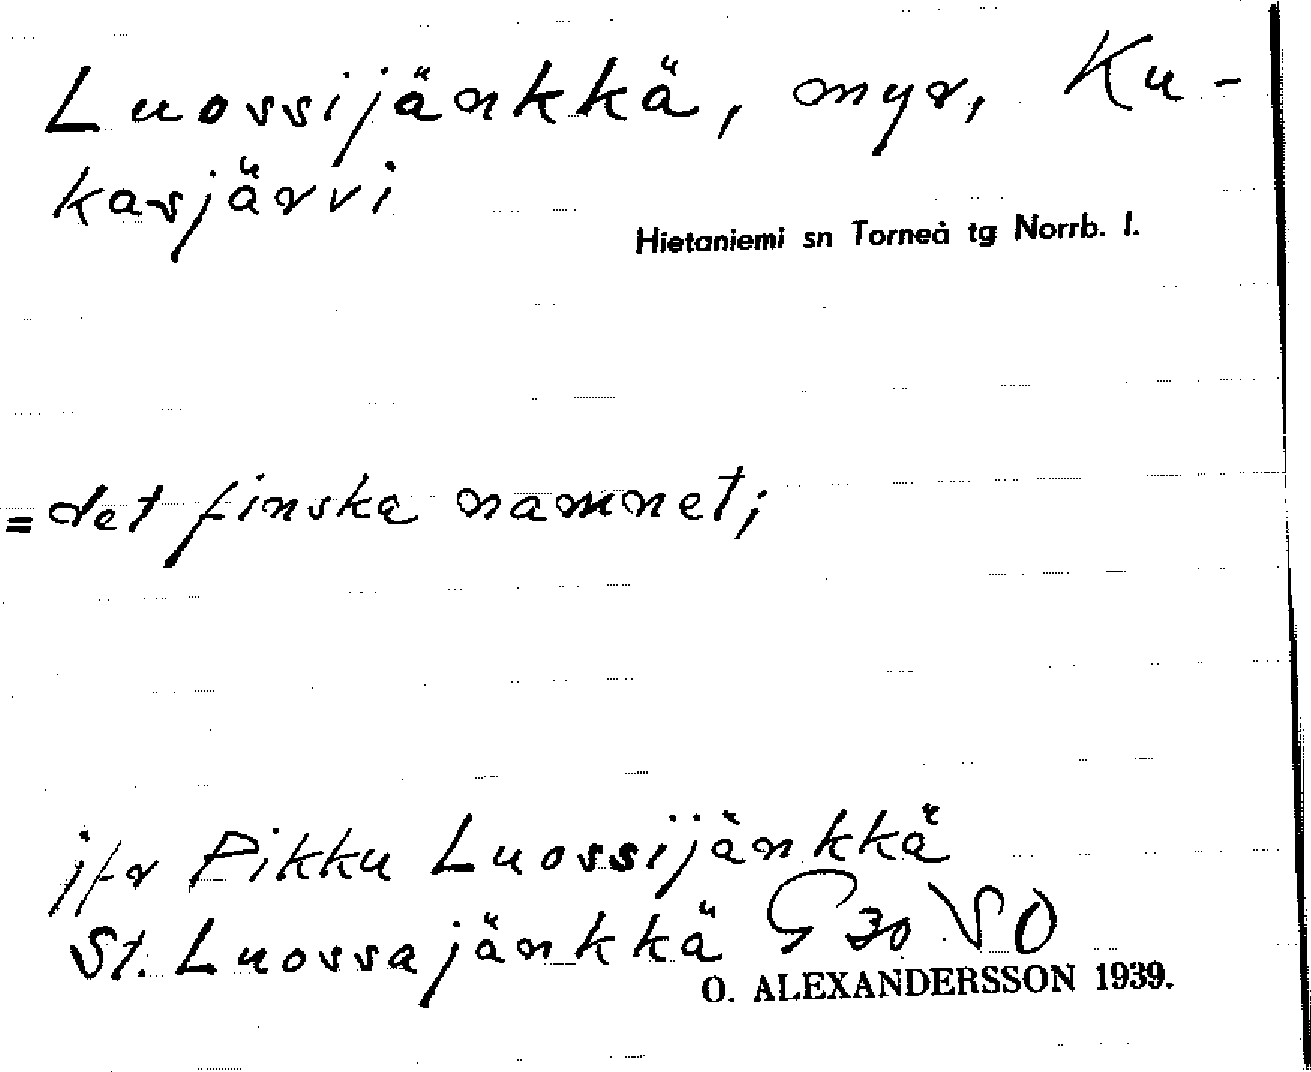 Luossijänkkä, myr, Ku-
kasjärvi
Hietaniemi sn Torneå tg Norrb. l.
= det finska namnet;
jfr Pikku Luossijänkkä
St. Luossajänkkä G 30 SO
O. ALEXANDERSSON 1939.